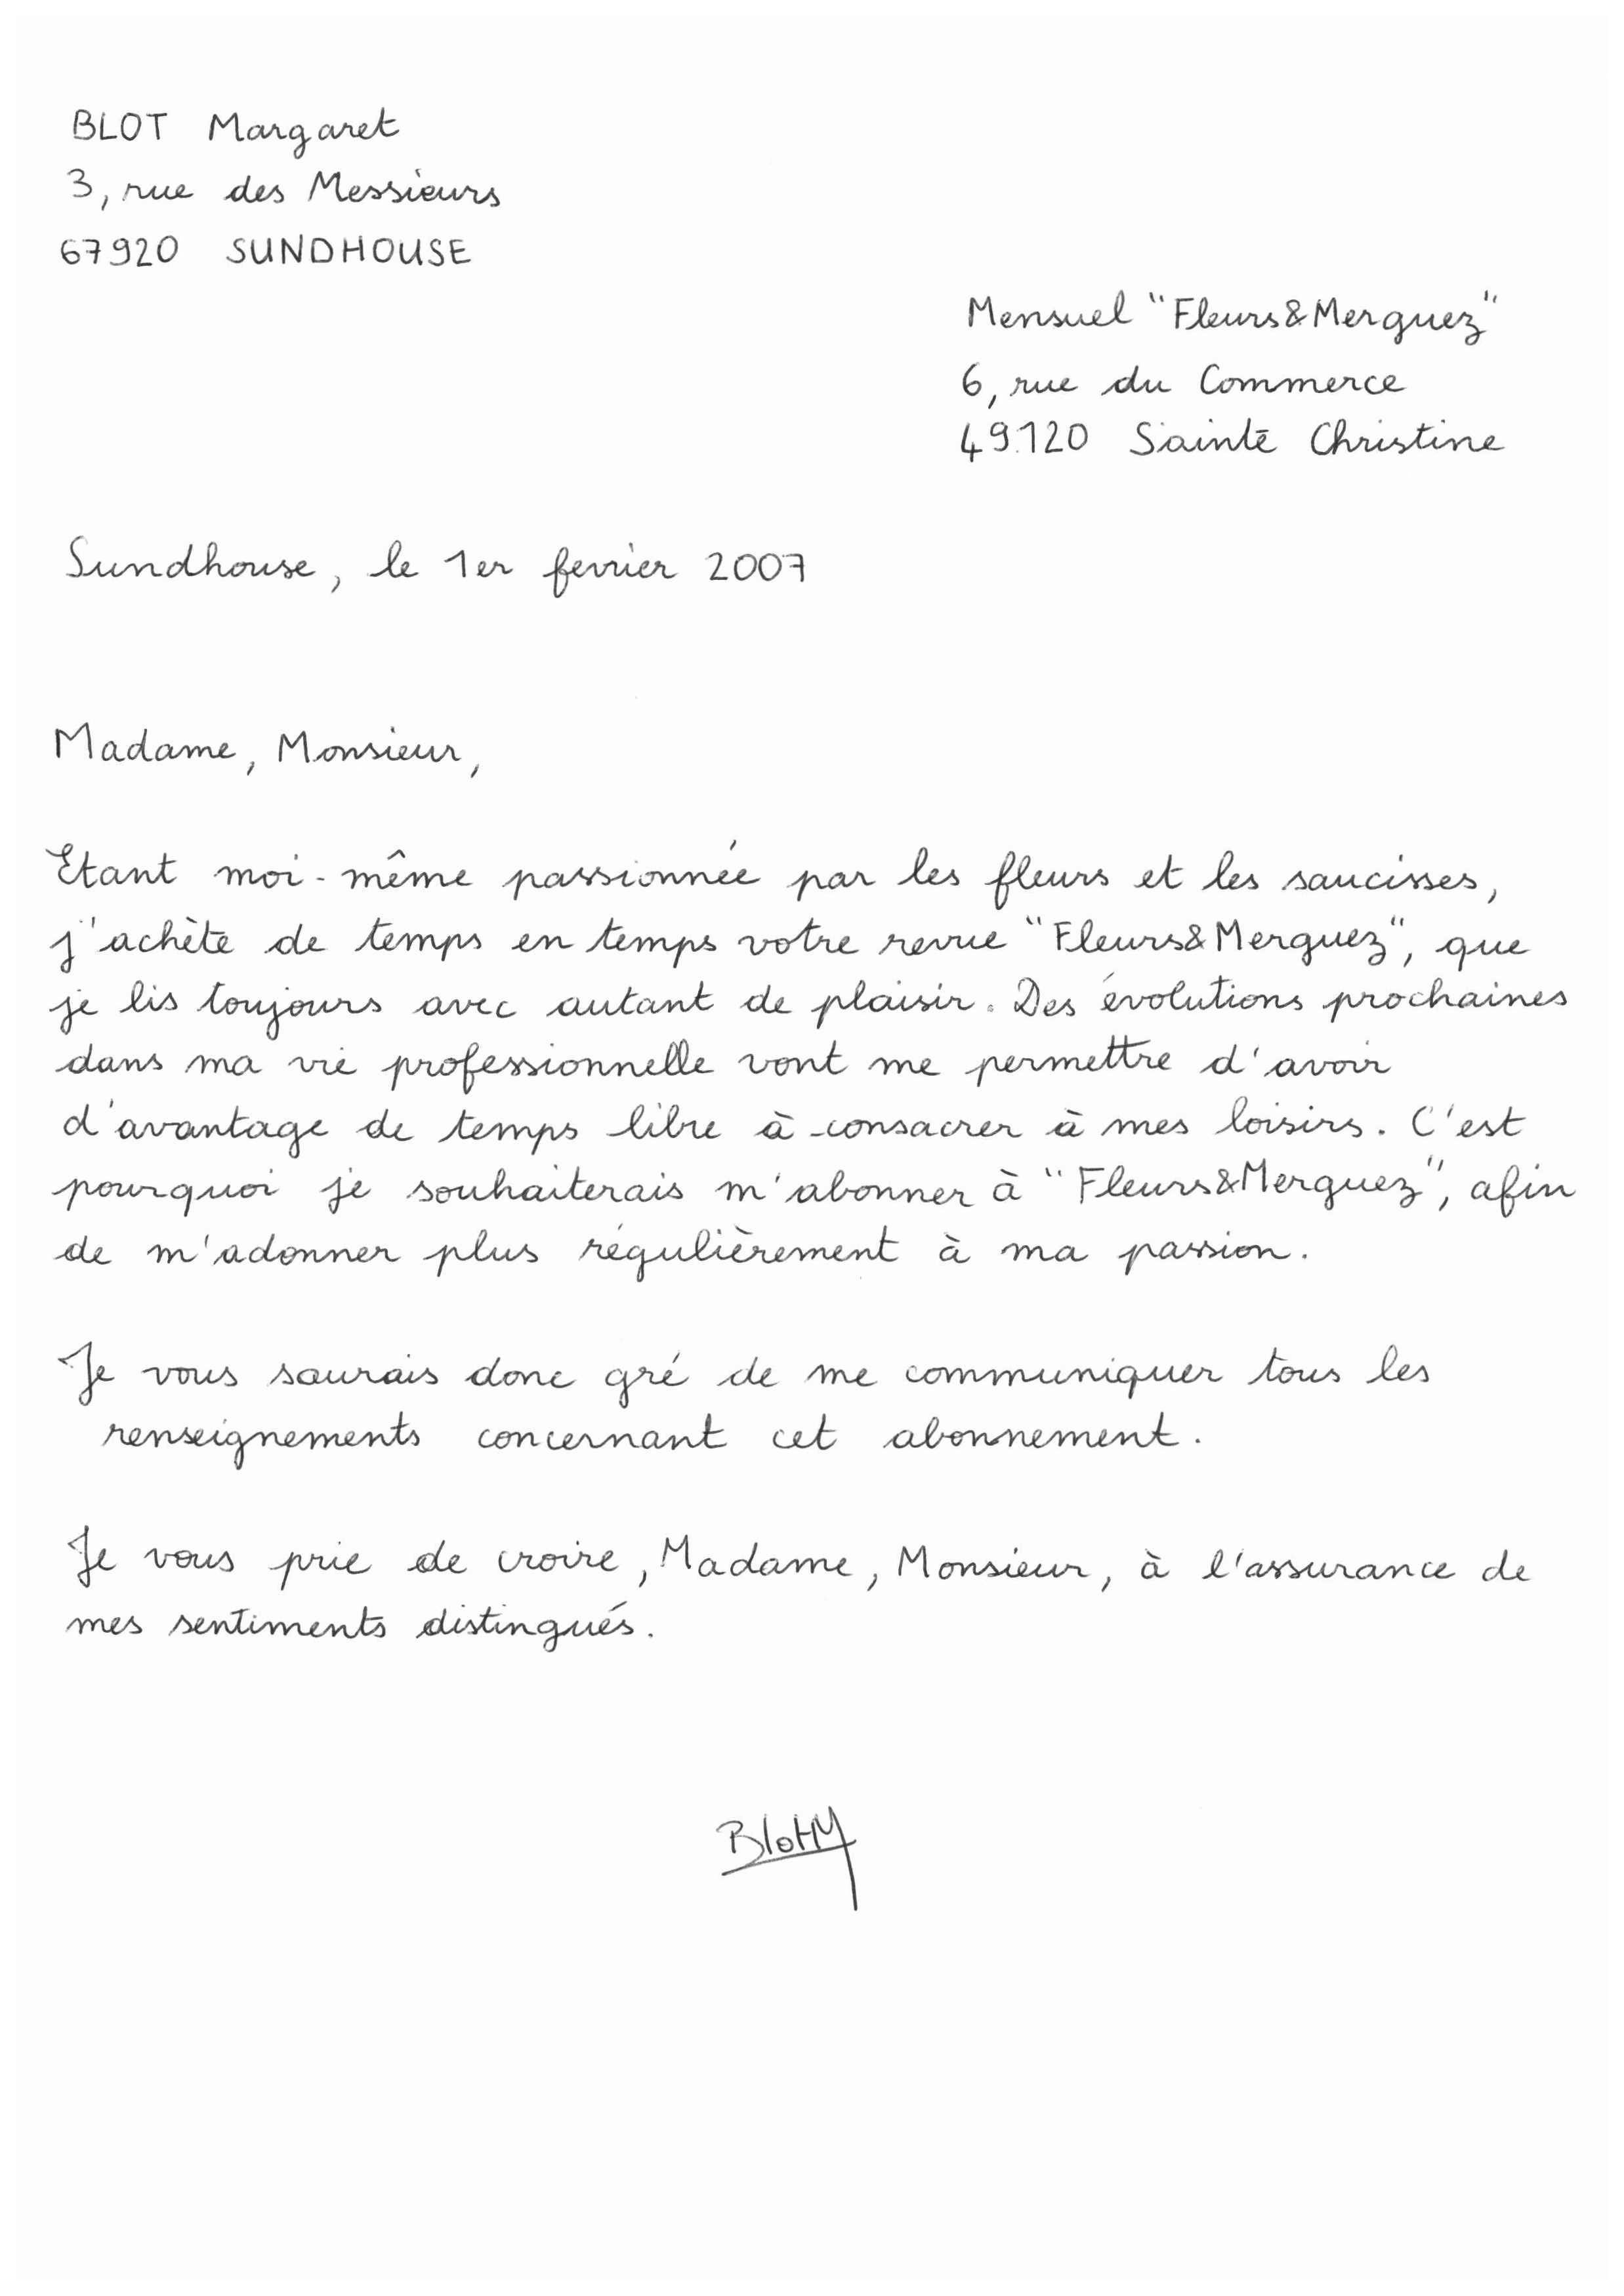 BLOT Margaret
3, rue des Messieurs
67920 SUNDHOUSE
Mensuel "Fleurs&Merguez"
6, rue du Commerce
49120 Sainte Christine
Sundhouse, le 1er fevrier 2007
Madame, Monsieur,
Etant moi-même passionnée par les fleurs et les saucisses,
j'achète de temps en temps votre revue "Fleurs&Merguez", que
je lis toujours avec autant de plaisir. Des évolutions prochaines
dans ma vie professionnelle vont me permettre d'avoir
d'avantage de temps libre à consacrer à mes loisirs. C'est
pourquoi je souhaiterais m'abonner à "Fleurs&Merguez", afin
de m'adonner plus régulièrement à ma passion.
Je vous saurais donc gré de me communiquer tous les
renseignements concernant cet abonnement.
Je vous prie de croire, Madame, Monsieur, à l'assurance de
mes sentiments distingués.
BlotM